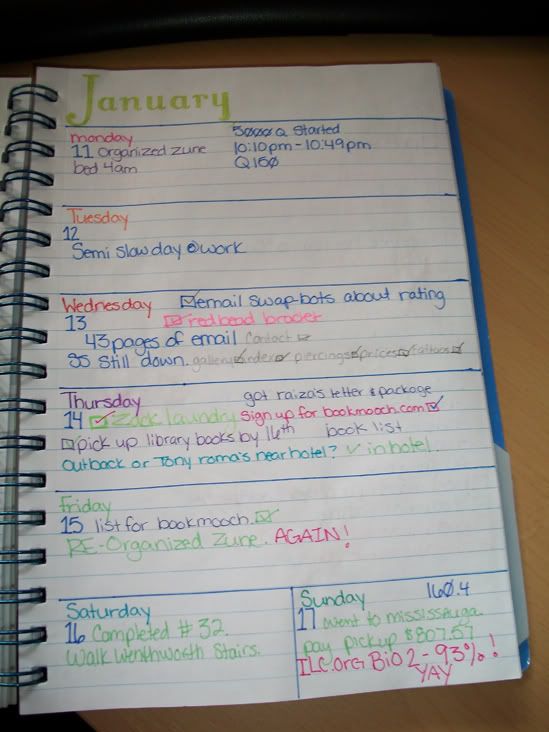 January
monday 5000 Q Started
11 organized zune 10:10pm - 10:49pm
bed 4am Q150
Tuesday
12
Semi slow day @ work
Wednesday ☑ email swap-bots about rating
13 ☑ red bead broder
43 pages of email Contact
Still down. gallery index piercings prices tattoos
Thursday got raiza's letter & package
14 ☑ Zack laundry Sign up for bookmooch.com ☑
☑ pick up library books by 16th book list
Outback or Tony roma's near hotel? ✓ in hotel.
Friday
15 list for bookmooch. ☑
RE-Organized Zune. AGAIN!
Saturday
16 Completed # 32.
Walk Wenthworth Stairs.
Sunday 160.4
17 went to mississauga
pay pickup $807.57
ILC.ORG BiO 2 - 93%!
YAY